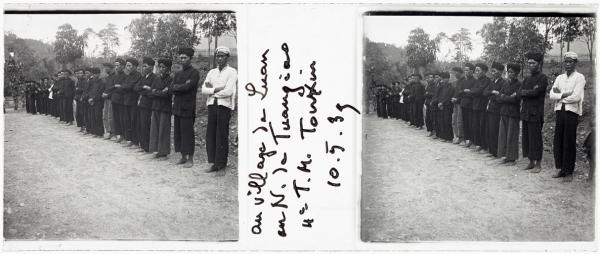 au village de Luan
au N. de Tuangiao
4e T. M. Tonkin
10.5.39